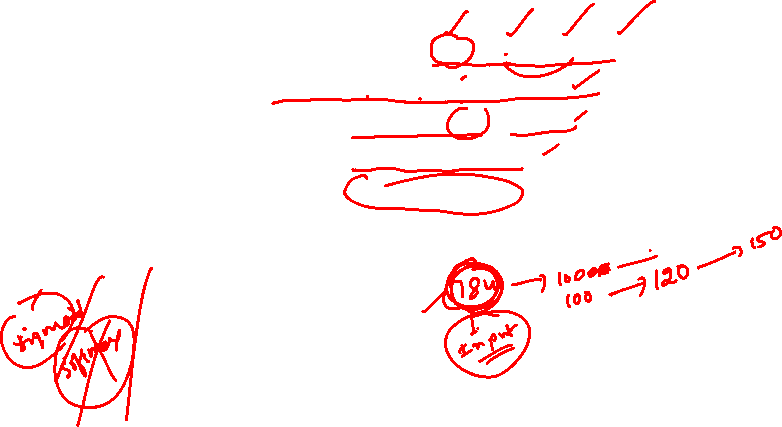 150
784 → 1000
100 → 120
Input
sigmoid
softmax